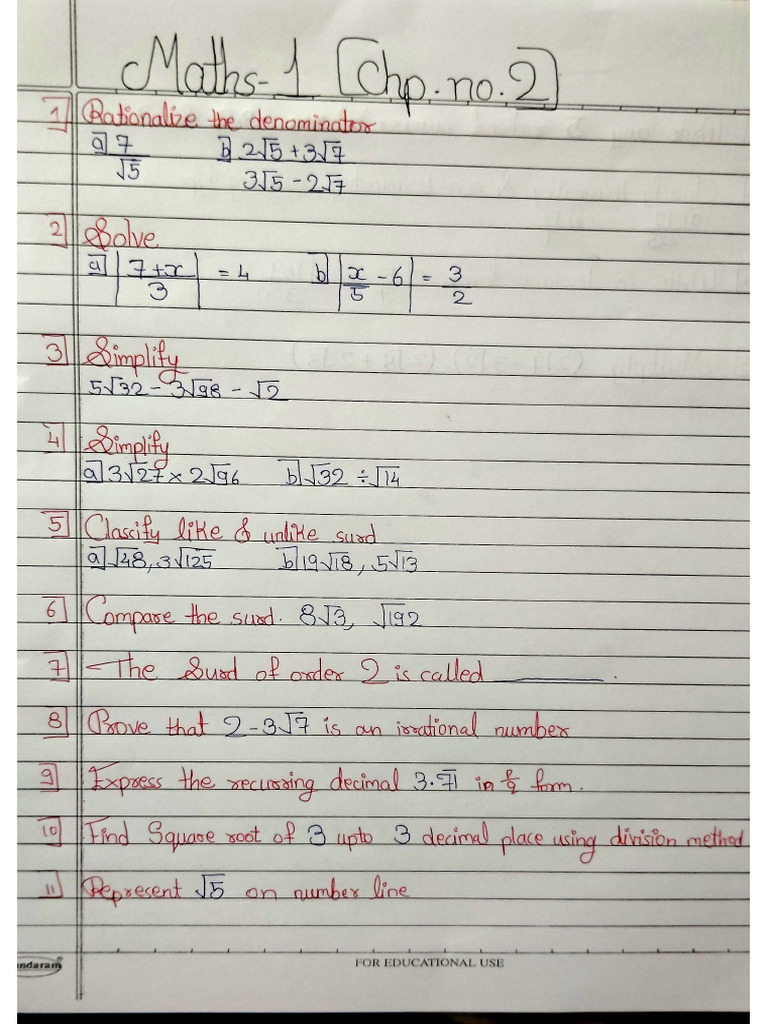 Maths-1 [Chp.no.2]
1] Rationalize the denominator
a] 7/√5 b] 2√5+3√7 / 3√5-2√7
2] Solve
a] |7+x/3| = 4 b] |x/5 - 6| = 3/2
3] Simplify
5√32 - 3√98 - √2
4] Simplify
a] 3√27 × 2√96 b] √32 ÷ √14
5] Classify like & unlike surd
a] √48, 3√125 b] 19√18, 5√13
6] Compare the surd. 8√3, √192
7] The Surd of order 2 is called ________.
8] Prove that 2-3√7 is an irrational number
9] Express the recurring decimal 3.7̅1̅ in p/q form.
10] Find Square root of 3 upto 3 decimal place using division method
11] Represent √5 on number line
FOR EDUCATIONAL USE